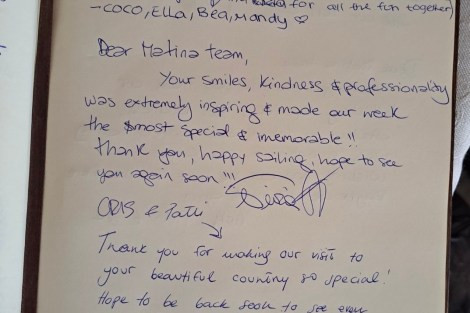 for all the fun together)
-COCO, Ella, Bea, Mandy ♡
Dear Matina team,
Your smiles, kindness & professionality
was extremely inspiring & made our week
the most special & memorable!!
thank you, happy sailing, hope to see
you again soon!!!
CRIS &
Thank you for making our visit to
your beautiful country so special!
Hope to be back soon to see